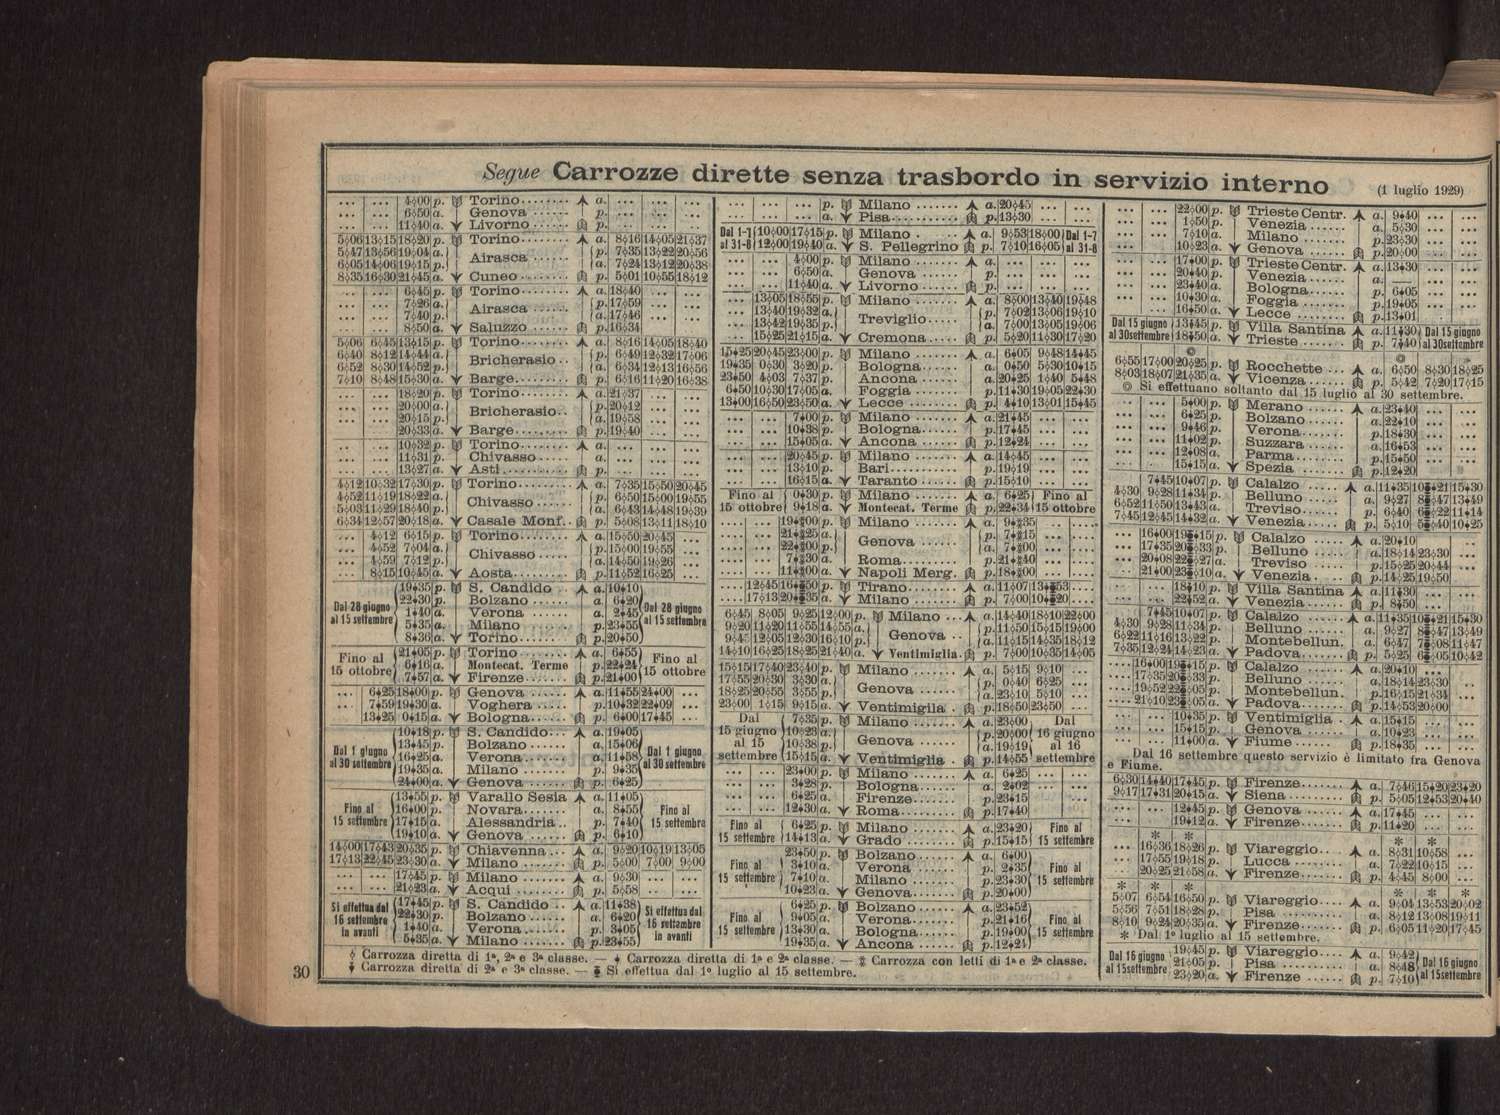 Segue Carrozze dirette senza trasbordo in servizio interno (1 luglio 1929)
... ... 4 00 p. Torino a. ... ... ...
... ... 6 50 p. Genova p. ... ... ...
... ... 11 40 a. Livorno p. ... ... ...
5 06 13 15 18 20 p. Torino a. 8 16 14 05 21 37
5 47 13 56 19 04 a. Airasca p. 7 35 13 22 20 56
6 05 14 06 19 15 p. a. 7 24 13 12 20 38
8 35 16 30 21 45 a. Cuneo p. 5 01 10 55 18 12
... ... 6 45 p. Torino a. 18 40
... ... 7 26 a. Airasca p. 17 59
... ... 7 40 p. a. 17 46
... ... 8 50 a. Saluzzo p. 16 34
5 06 6 45 13 15 p. Torino a. 8 16 14 05 18 40
6 40 8 12 14 44 a. Bricherasio p. 6 49 12 32 17 06
6 52 8 30 14 52 p. a. 6 34 12 13 16 56
7 10 8 48 15 30 a. Barge p. 6 16 11 20 16 38
... ... 18 20 p. Torino a. 21 37
... ... 20 00 a. Bricherasio p. 20 12
... ... 20 15 p. a. 19 58
... ... 20 33 a. Barge p. 19 40
... ... 10 32 p. Torino a. ... ... ...
... ... 11 31 p. Chivasso a. ... ... ...
... ... 13 27 a. Asti p. ... ... ...
4 12 10 32 17 30 p. Torino a. 7 35 15 50 20 45
4 52 11 19 18 22 a. Chivasso p. 6 50 15 00 19 55
5 03 11 29 18 40 p. a. 6 43 14 48 19 39
6 34 12 57 20 18 a. Casale Monf. p. 5 08 13 11 18 10
... 4 12 6 15 p. Torino a. 15 50 20 45 ...
... 4 52 7 04 a. Chivasso p. 15 00 19 55 ...
... 4 59 7 12 p. a. 14 50 19 26 ...
... 8 15 10 45 a. Aosta p. 11 52 16 25 ...
Dal 28 giugno al 15 settembre
19 35 p. S. Candido a. 10 10
22 30 p. Bolzano a. 6 20
1 40 a. Verona a. 2 45
5 35 a. Milano p. 23 55
8 36 a. Torino p. 20 50
Dal 28 giugno al 15 settembre
Fino al 15 ottobre
21 05 p. Torino a. 6 55
6 16 a. Montecat. Terme p. 22 24
7 57 a. Firenze p. 21 00
Fino al 15 ottobre
... 6 25 18 00 p. Genova a. 11 55 24 00 ...
... 7 59 19 30 a. Voghera p. 10 32 22 09 ...
... 13 25 0 15 a. Bologna p. 6 00 17 45 ...
Dal 1 giugno al 30 settembre
10 18 p. S. Candido a. 19 05
13 45 p. Bolzano a. 15 06
16 25 a. Verona a. 11 58
19 35 a. Milano p. 9 35
24 00 a. Genova p. 6 25
Dal 1 giugno al 30 settembre
Fino al 15 settembre
13 55 p. Varallo Sesia a. 11 05
16 00 p. Novara a. 8 55
17 15 a. Alessandria p. 7 40
19 10 a. Genova p. 6 10
Fino al 15 settembre
14 00 17 43 20 35 p. Chiavenna a. 9 20 10 19 13 05
17 13 22 45 23 30 a. Milano p. 5 00 7 00 9 00
... ... 17 45 p. Milano a. 9 30
... ... 21 23 a. Acqui p. 5 58
Si effettua dal 16 settembre in avanti
17 45 p. S. Candido a. 11 38
22 30 p. Bolzano a. 6 20
1 40 a. Verona p. 3 05
5 35 a. Milano p. 23 55
Si effettua dal 16 settembre in avanti
... ... ... p. Milano a. 20 45
... ... ... a. Pisa p. 13 30
Dal 1-7 10 00 17 15 p. Milano a. 9 53 18 00 Dal 1-7
al 31-8 12 00 19 40 a. S. Pellegrino p. 7 10 16 05 al 31-8
... ... 4 00 p. Milano a. ... ... ...
... ... 6 50 p. Genova p. ... ... ...
... ... 11 40 a. Livorno p. ... ... ...
... 13 05 18 55 p. Milano a. 8 00 13 40 19 48
... 13 40 19 32 a. Treviglio p. 7 02 13 06 19 10
... 13 42 19 35 p. a. 7 00 13 05 19 06
... 15 25 21 15 a. Cremona p. 5 20 11 30 17 20
15 25 20 45 23 00 p. Milano a. 6 05 9 48 14 45
19 35 0 30 3 20 p. Bologna a. 0 50 5 30 10 15
23 50 4 03 7 37 p. Ancona a. 20 25 1 40 5 48
6 50 10 30 17 05 a. Foggia p. 11 30 19 05 22 30
13 00 16 50 23 50 a. Lecce p. 4 10 13 01 15 45
... ... 7 00 p. Milano a. 21 45
... ... 10 38 p. Bologna p. 17 45
... ... 15 05 a. Ancona p. 12 24
... ... 20 45 p. Milano a. 14 45
... ... 13 10 p. Bari p. 19 19
... ... 16 15 a. Taranto p. 15 10
Fino al 0 30 p. Milano a. 6 25 Fino al
15 ottobre 9 18 a. Montecat. Terme p. 22 34 15 ottobre
... ... 19 00 p. Milano a. 9 35
... ... 21 25 a. Genova p. 7 15
... ... 22 00 p. a. 7 00
... ... 7 30 a. Roma p. 21 40
... ... 11 00 a. Napoli Merg. p. 18 00
... 12 45 16 50 p. Tirano a. 11 07 13 53
... 17 13 20 35 a. Milano p. 7 00 10 20
6 45 8 05 9 25 12 00 p. Milano a. 14 40 18 10 22 00
9 20 11 20 11 55 14 55 a. Genova p. 11 50 15 15 19 00
9 45 12 05 12 30 16 10 p. a. 11 15 14 35 18 12
14 10 16 25 18 25 21 40 a. Ventimiglia p. 7 00 10 35 14 05
15 15 17 40 23 40 p. Milano a. 5 15 9 10
17 55 20 30 3 30 a. Genova p. 0 40 6 25
18 25 20 55 3 55 p. a. 23 10 5 10
23 00 1 15 9 15 a. Ventimiglia p. 18 50 23 50
Dal 15 giugno al 15 settembre
7 35 p. Milano a. 23 00
10 23 a. Genova p. 20 00
10 38 p. a. 19 19
15 15 a. Ventimiglia p. 14 55
Dal 16 giugno al 16 settembre
... ... 23 00 p. Milano a. 6 25
... ... 3 28 p. Bologna a. 2 02
... ... 6 25 a. Firenze p. 23 15
... ... 12 30 a. Roma p. 17 40
Fino al 6 25 p. Milano a. 23 20 Fino al
15 settembre 14 13 a. Grado p. 15 15 15 settembre
Fino al 15 settembre
23 50 p. Bolzano a. 6 00
3 10 a. Verona p. 2 35
7 10 a. Milano p. 23 30
10 23 a. Genova p. 20 00
Fino al 15 settembre
Fino al 15 settembre
6 25 p. Bolzano a. 23 52
9 05 a. Verona p. 21 16
13 30 a. Bologna p. 19 00
19 35 a. Ancona p. 12 24
Fino al 15 settembre
... ... 22 00 p. Trieste Centr. a. 9 40
... ... 1 50 p. Venezia a. 5 30
... ... 7 10 a. Milano p. 23 30
... ... 10 23 a. Genova p. 20 00
... ... 17 00 p. Trieste Centr. a. 13 30
... ... 20 40 p. Venezia a. —
... ... 23 40 p. Bologna a. 6 05
... ... 10 30 a. Foggia p. 19 05
... ... 16 50 a. Lecce p. 13 01
Dal 15 giugno 13 45 p. Villa Santina a. 11 30 Dal 15 giugno
al 30 settembre 18 50 a. Trieste p. 7 40 al 30 settembre
6 55 17 00 20 25 p. Rocchette a. 6 50 8 30 18 25
8 03 18 07 21 35 a. Vicenza p. 5 42 7 20 17 15
◎ Si effettuano soltanto dal 15 luglio al 30 settembre.
... ... 5 00 p. Merano a. 23 40
... ... 6 25 p. Bolzano a. 22 10
... ... 9 46 p. Verona p. 18 30
... ... 11 02 p. Suzzara a. 16 53
... ... 12 08 a. Parma p. 15 50
... ... 15 15 a. Spezia p. 12 20
7 45 10 07 p. Calalzo a. 11 35 10 21 15 30
4 30 9 28 11 34 p. Belluno a. 9 27 8 47 13 49
6 52 11 50 13 43 a. Treviso p. 6 40 6 22 11 14
7 45 12 45 14 32 a. Venezia p. 5 10 5 40 10 25
... 16 00 19 15 p. Calalzo a. 20 10
... 17 35 20 33 p. Belluno a. 18 14 23 30
... 20 08 22 27 a. Treviso p. 15 25 20 44
... 21 00 23 10 a. Venezia p. 14 25 19 50
... ... 18 10 p. Villa Santina a. 11 30
... ... 22 52 a. Venezia p. 8 50
7 45 10 07 p. Calalzo a. 11 35 10 21 15 30
4 30 9 28 11 34 p. Belluno a. 9 27 8 47 13 49
6 22 11 16 13 22 p. Montebellun. a. 6 47 7 08 11 42
7 35 12 24 14 23 a. Padova p. 5 25 6 05 10 42
... 16 00 19 15 p. Calalzo a. 20 10
... 17 35 20 33 p. Belluno a. 18 14 23 30
... 19 52 22 05 p. Montebellun. p. 16 15 21 34
... 21 10 23 05 a. Padova p. 14 53 20 00
... ... 10 35 p. Ventimiglia a. 15 15
... ... 15 15 p. Genova p. 10 23
... ... 11 00 a. Fiume p. 18 35
Dal 16 settembre questo servizio è limitato fra Genova
e Fiume.
6 30 14 40 17 45 p. Firenze a. 7 46 15 20 23 20
9 17 17 31 20 15 a. Siena p. 5 05 12 53 20 40
... ... 12 45 p. Genova a. 17 45
... ... 19 12 a. Firenze p. 11 20
* * * *
... 16 36 18 26 p. Viareggio a. 8 31 10 58
... 17 55 19 18 p. Lucca a. 7 22 10 15
... 20 25 21 58 a. Firenze p. 4 45 8 00
* * * * * *
5 07 6 54 16 50 p. Viareggio a. 9 04 13 53 20 02
5 56 7 51 18 28 p. Pisa a. 8 12 13 08 19 11
8 10 9 24 20 35 a. Firenze p. 6 05 11 20 17 45
* Dal 1º luglio al 15 settembre.
Dal 16 giugno al 15 settembre
19 45 p. Viareggio a. 9 42
21 05 p. Pisa a. 8 48
23 20 a. Firenze p. 7 10
Dal 16 giugno al 15 settembre
Carrozza diretta di 1ª, 2ª e 3ª classe. — Carrozza diretta di 1ª e 2ª classe. — Carrozza con letti di 1ª e 2ª classe.
Carrozza diretta di 2ª e 3ª classe. — Si effettua dal 1º luglio al 15 settembre.
30